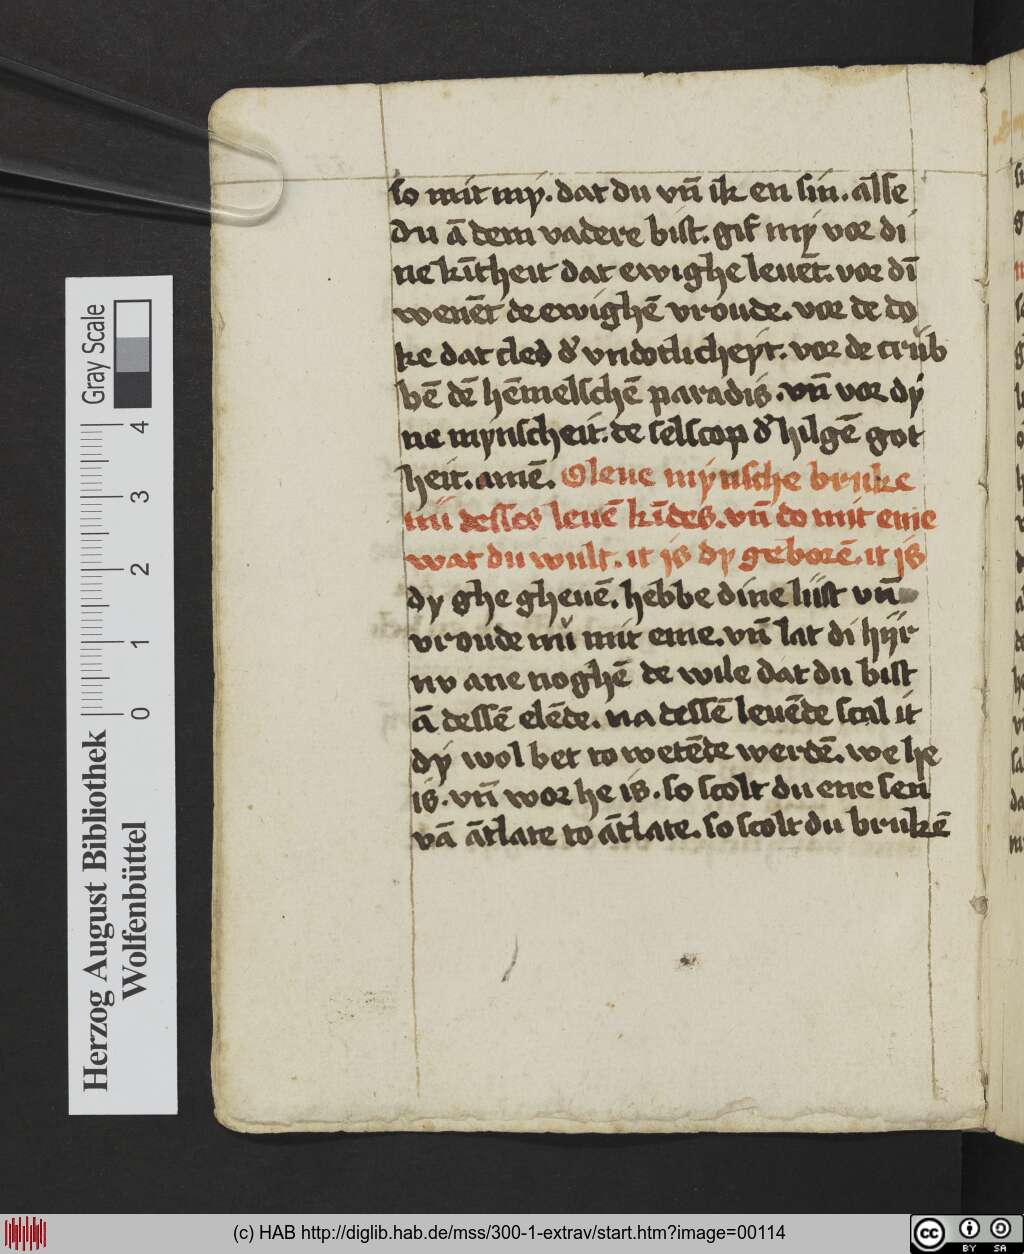 so mit my. dat du vn̄ ik en sin. alse
du ā dem vadere bist. gif my vor di
ne kītheit dat ewighe leuēt. vor dī
wenēt de ewighē vroude. vor de do
ke dat cled d' vndotlicheyt. vor de crub
bē dē hēmelschē paradis. vn̄ vor dy
ne mynscheit. de selscop d' hilgē got
heit. amē. O leue mynsche bruke
nu desses leuē kīdes. vn̄ do mit eme
wat du wult. it is dy geborē. it is
dy ghe gheuē. hebbe dine lust vn̄
vroude nu mit eme. vn̄ lat di hijr
nv ane noghē de wile dat du bist
ā dessē elēde. na dessē leuēde scal it
dy wol bet to wetēde werdē. we he
is. vn̄ wor he is. so scolt du ene sen
vā ātlate to ātlate. so scolt du brukē
Gray Scale
0 1 2 3 4
Herzog August Bibliothek
Wolfenbüttel
(c) HAB http://diglib.hab.de/mss/300-1-extrav/start.htm?image=00114
cc BY SA